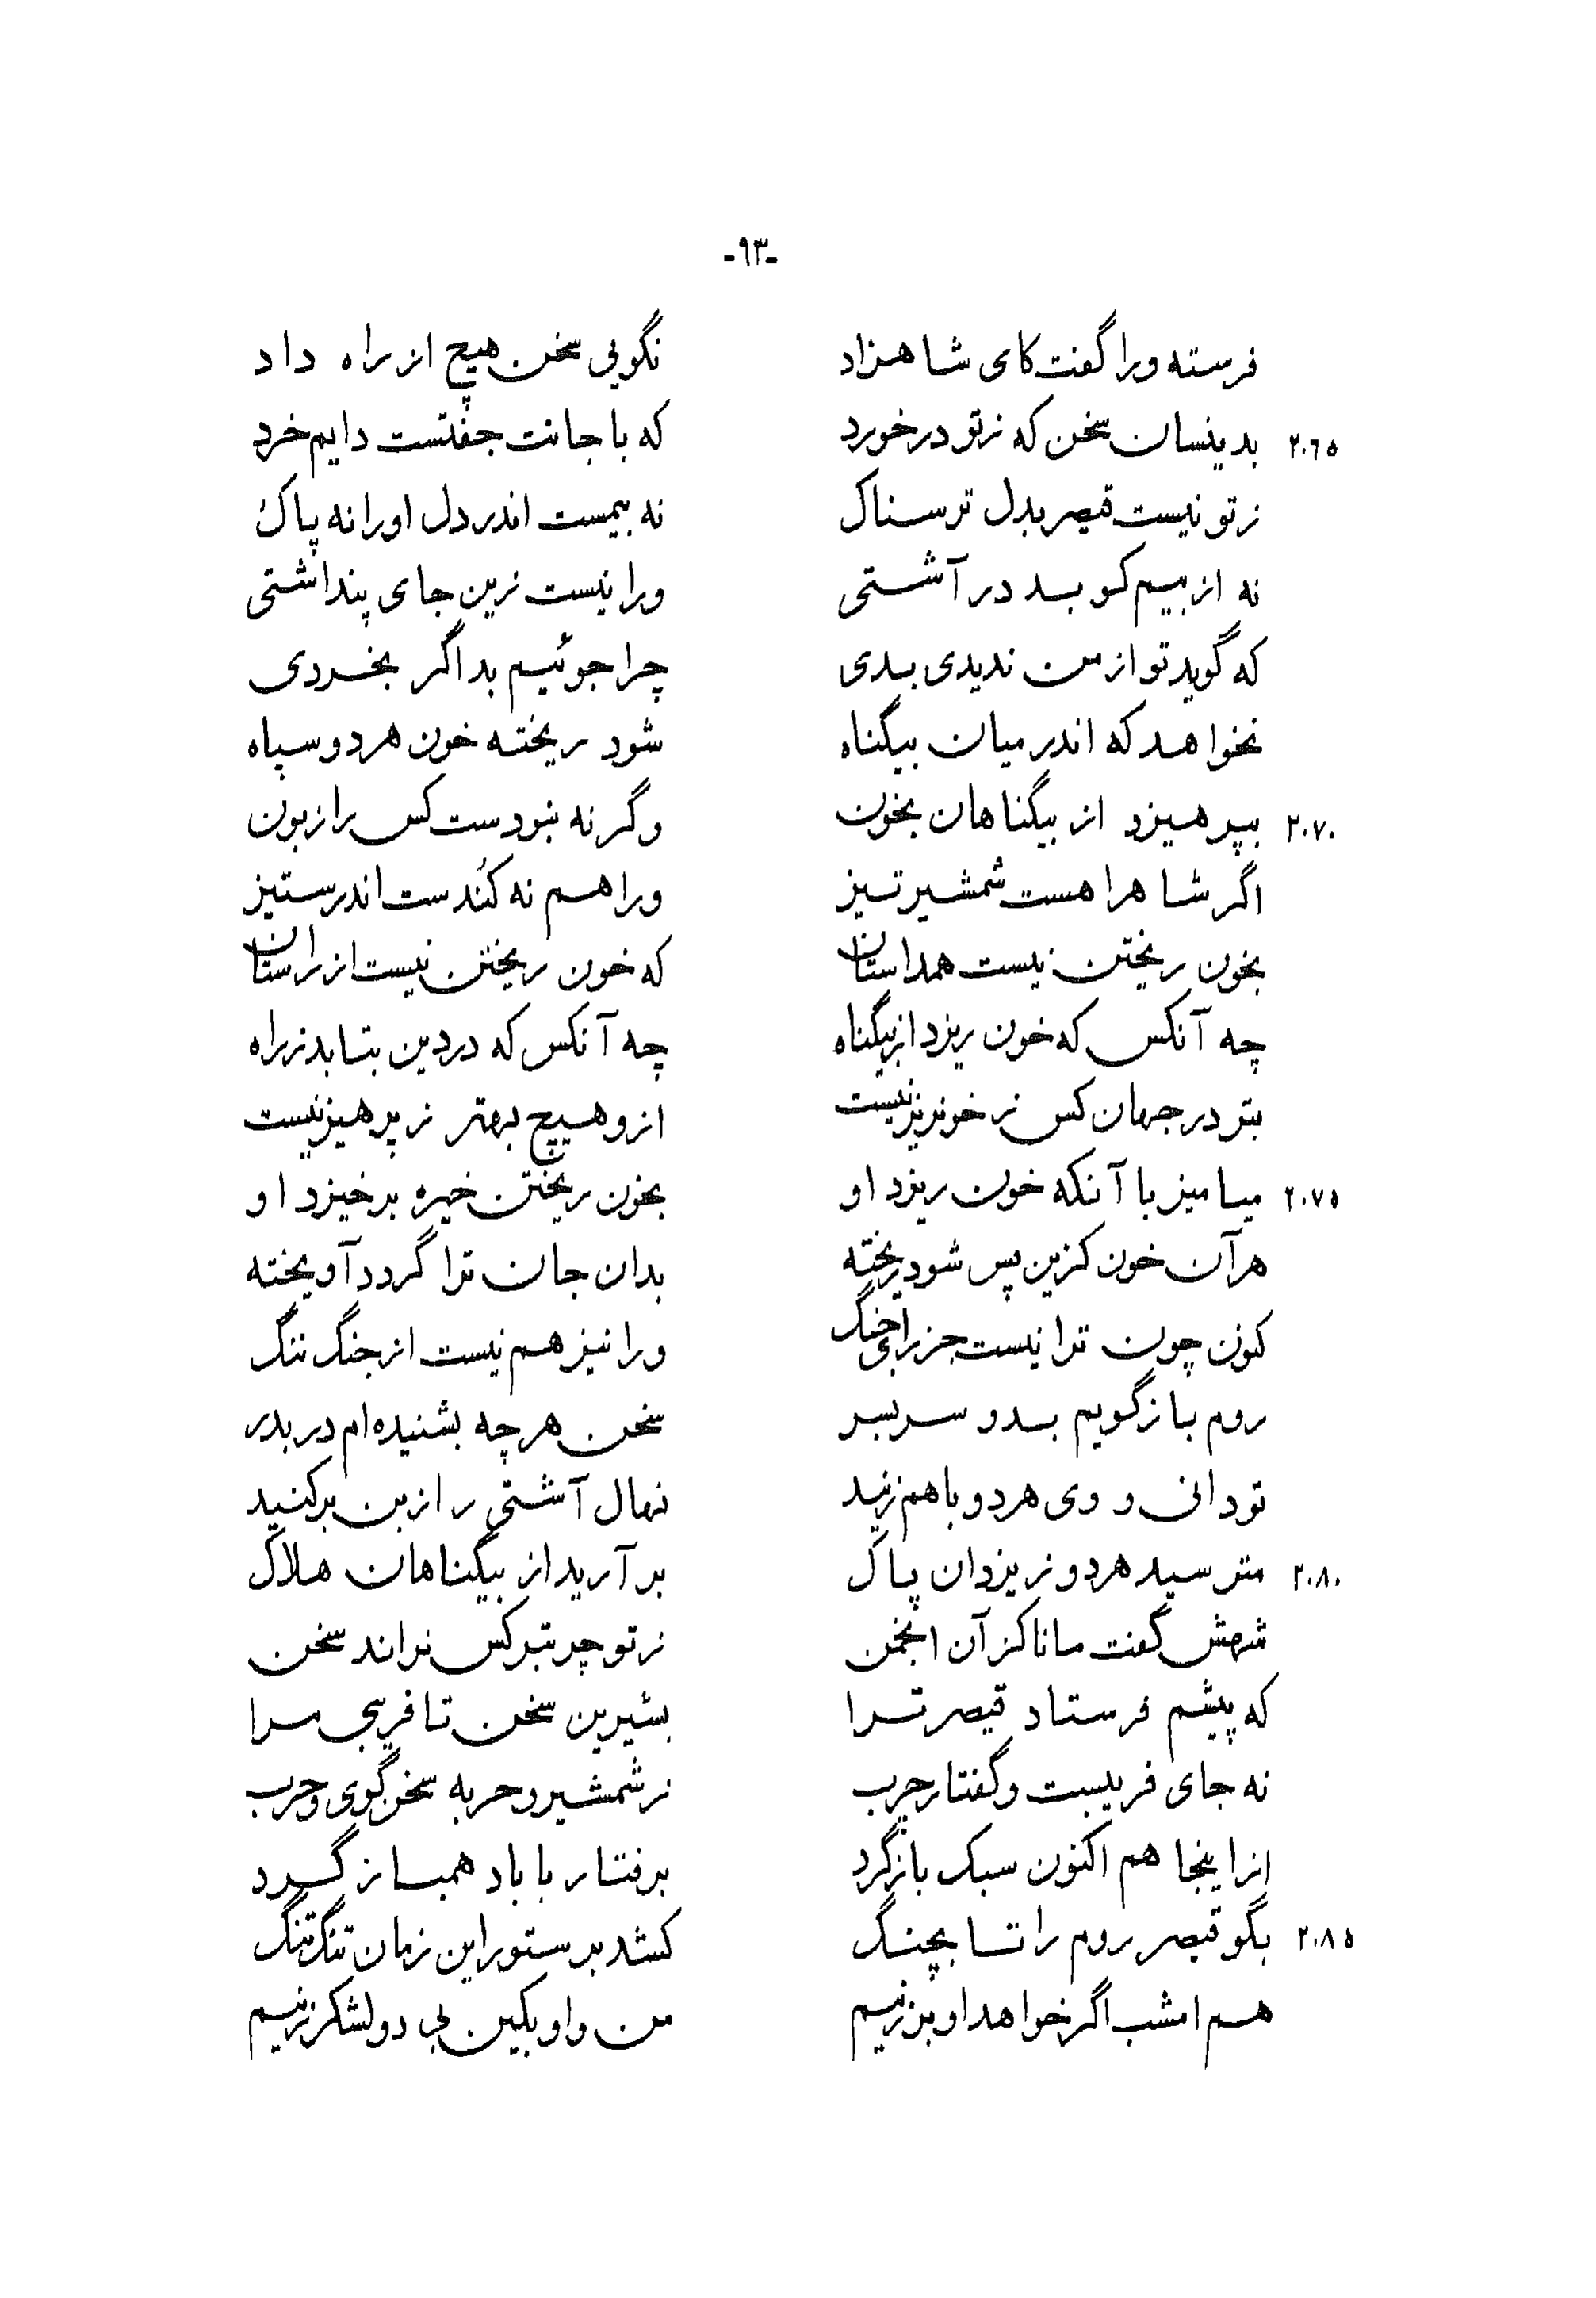 -۹۳-
فرسته ورا گفت کای شاهزاد نگویی سخن هیچ از راه داد
۲۰۶۵ بدینسان سخن که ز تو در خورد که با جانت جفتست دایم خرد
ز تو نیست قیصر بدل ترسناک نه بیمست اندر دل او را نه پاک
نه از بیم کوبد در آشتی ورا نیست زین جای پنداشتی
که گوید تو از من ندیدی بدی چرا جوئیم بد اگر بخردی
نخواهد که اندر میان بیگناه شود ریخته خون هر دو سپاه
۲۰۷۰ بپرهیزد از بیگناهان بخون وگرنه نبودست کس را زبون
اگر شاه را هست شمشیر تیز ورا هم نه کُندست اندر ستیز
بخون ریختن نیست همداستان که خون ریختن نیست از راستان
چه آنکس که خون ریزد از بیگناه چه آنکس که در دین بتابد ز راه
بتر در جهان کس ز خونریز نیست ازو هیچ بهتر ز پرهیز نیست
۲۰۷۵ میامیز با آنکه خون ریزد او بخون ریختن خیره برخیزد او
هر آن خون کزین پس شود ریخته بدان جان ترا گردد آویخته
کنون چون ترا نیست جز رای جنگ ورا نیز هم نیست از جنگ ننگ
روم باز گویم بدو سربسر سخن هر چه بشنیده‌ام دربدر
تو دانی و وی هر دو با هم زنید نهال آشتی را ز بن برکنید
۲۰۸۰ مترسید هر دو ز یزدان پاک برآرید از بیگناهان هلاک
شهش گفت مانا کز آن انجمن ز تو چربتر کس نراند سخن
که پیشم فرستاد قیصر ترا بشیرین سخن تا فریبی مرا
نه جای فریبست و گفتار چرب ز شمشیر و حربه سخن گوی و حرب
از اینجا هم اکنون سبک بازگرد برفتار با باد همباز گرد
۲۰۸۵ بگو قیصر روم را تا بچنگ کشد بر ستور این زمان تنگ تنگ
هم امشب اگر خواهد او بر زنیم من و او بکین بی دو لشکر زنیم